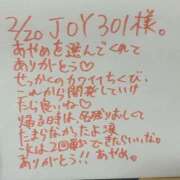 2/20 JOY301様。
あやめを選んでくれて
ありがとう♡
せっかくのカワイイちくび、
これから開発していけ
たら良いね♡
帰る時は名残りおしくて
たまらなかったよ涙
次は2回戦できたらいいな。
ありがとう!! あやめ。